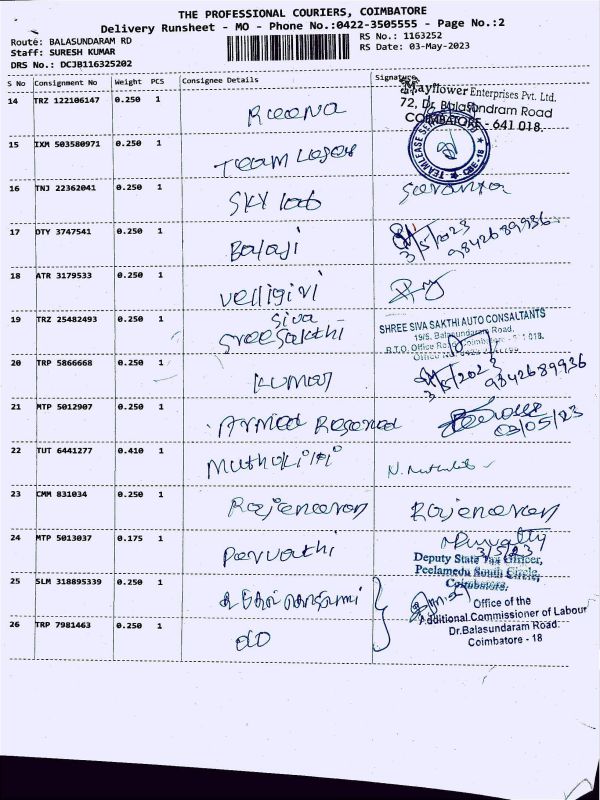 THE PROFESSIONAL COURIERS, COIMBATORE
Delivery Runsheet - MO - Phone No.:0422-3505555 - Page No.:2
Route: BALASUNDARAM RD
RS No.: 1163252
Staff: SURESH KUMAR
RS Date: 03-May-2023
DRS No.: DCJB116325202
S No Consignment No Weight PCS Consignee Details Signature
14 TRZ 122106147 0.250 1 Reena
Mayflower Enterprises Pvt. Ltd.
72, Dr. Balasundram Road
COIMBATORE - 641 018.
15 IXM 503580971 0.250 1 Team Lease
TEAMLEASE CBE - 18
16 TNJ 22362041 0.250 1 SKY lab Saranya
17 DTY 3747541 0.250 1 Balaji 3/5/2023 9842689936
18 ATR 3179533 0.250 1 Velligiri
19 TRZ 25482493 0.250 1 Sree Siva Sakthi
SHREE SIVA SAKTHI AUTO CONSULTANTS
19/5, Balasundaram Road,
R.T.O. Office Coimbatore 018.
20 TRP 5866668 0.250 1 Kumar 3/5/2023 9842689936
21 MTP 5012907 0.250 1 Armed Reserved 03/05/23
22 TUT 6441277 0.410 1
23 CMM 831034 0.250 1 Rajendran Rajendran
24 MTP 5013037 0.175 1 Parvathi 3/5/23
Deputy State Tax Officer,
Peelamedu South Circle,
Coimbatore.
25 SLM 318895339 0.250 1
Office of the
Additional Commissioner of Labour
Dr.Balasundaram Road
Coimbatore - 18
26 TRP 7981463 0.250 1 do